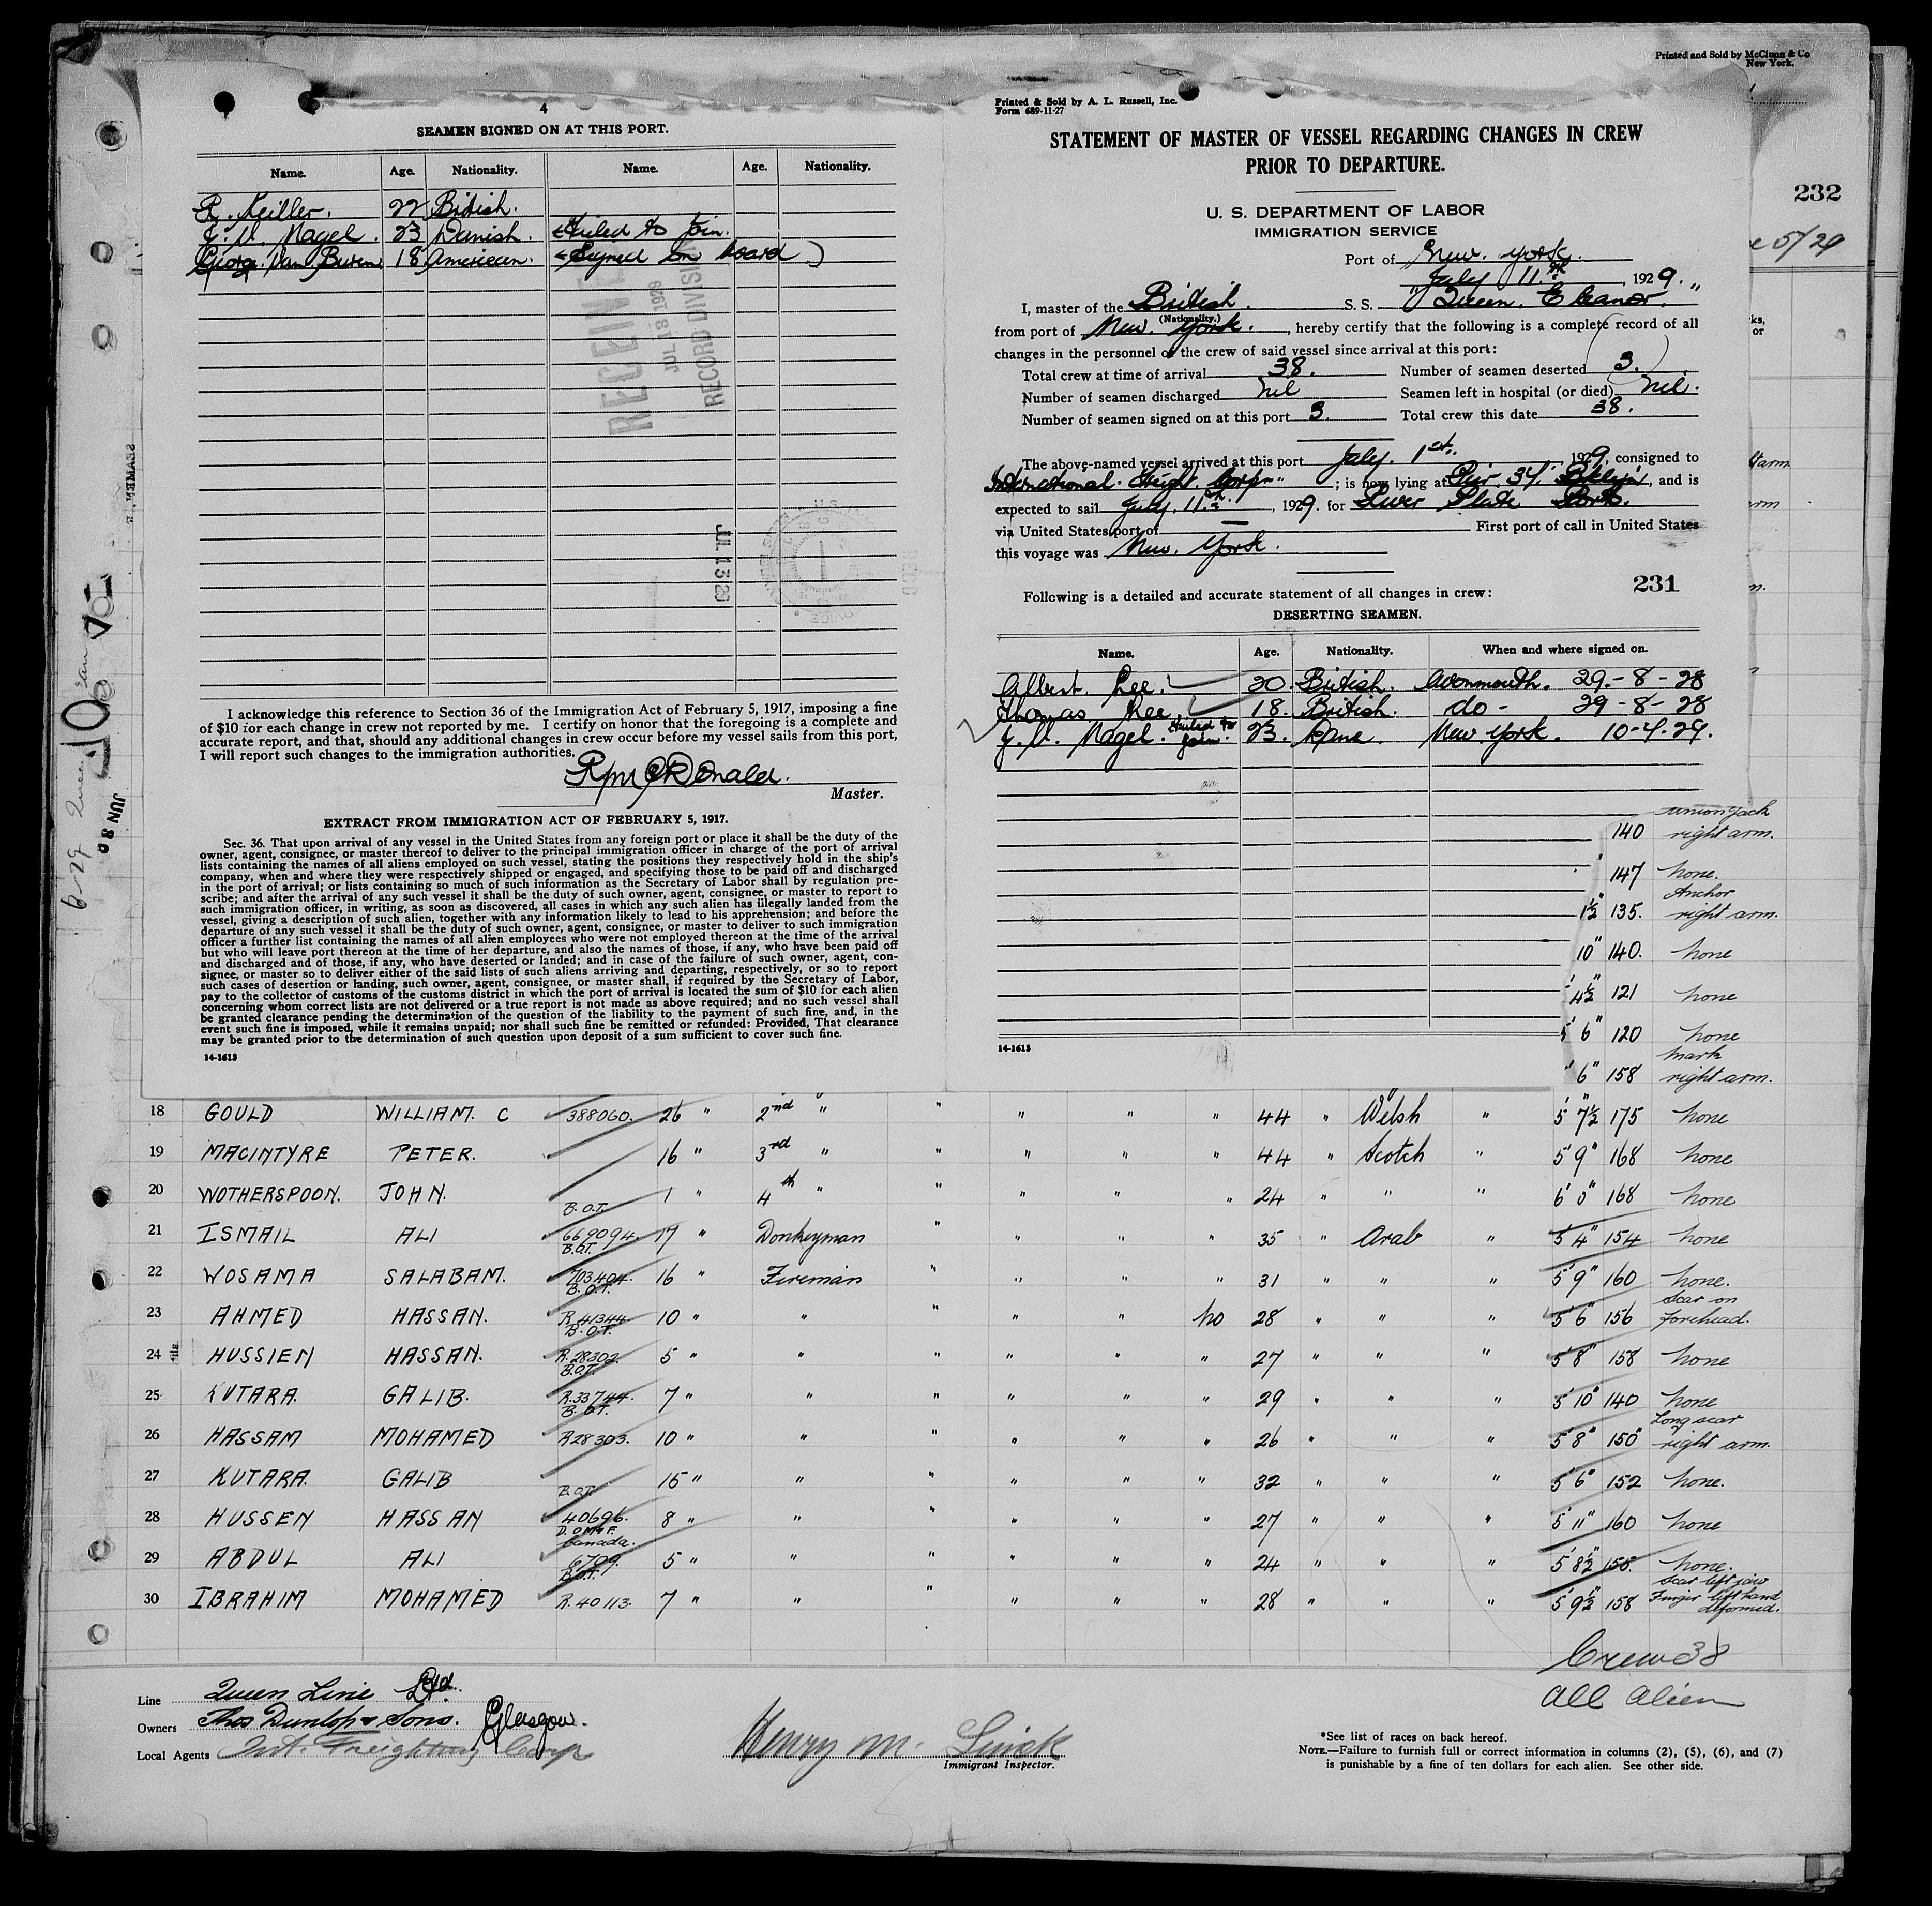 Printed and Sold by McClunn & Co
New York.
232
4
SEAMEN SIGNED ON AT THIS PORT.
Name. Age. Nationality. Name. Age. Nationality.
R. Keiller. 22 British.
J. V. Nagel. 23 Danish. Failed to join.
George Van Buren 18 American. (Signed on board)
RECEIVED
JUL 18 1929
RECORD DIVISION
JUL 13 29
I acknowledge this reference to Section 36 of the Immigration Act of February 5, 1917, imposing a fine
of $10 for each change in crew not reported by me. I certify on honor that the foregoing is a complete and
accurate report, and that, should any additional changes in crew occur before my vessel sails from this port,
I will report such changes to the immigration authorities.
Master.
EXTRACT FROM IMMIGRATION ACT OF FEBRUARY 5, 1917.
Sec. 36. That upon arrival of any vessel in the United States from any foreign port or place it shall be the duty of the
owner, agent, consignee, or master thereof to deliver to the principal immigration officer in charge of the port of arrival
lists containing the names of all aliens employed on such vessel, stating the positions they respectively hold in the ship's
company, when and where they were respectively shipped or engaged, and specifying those to be paid off and discharged
in the port of arrival; or lists containing so much of such information as the Secretary of Labor shall by regulation pre-
scribe; and after the arrival of any such vessel it shall be the duty of such owner, agent, consignee, or master to report to
such immigration officer, in writing, as soon as discovered, all cases in which any such alien has illegally landed from the
vessel, giving a description of such alien, together with any information likely to lead to his apprehension; and before the
departure of any such vessel it shall be the duty of such owner, agent, consignee, or master to deliver to such immigration
officer a further list containing the names of all alien employees who were not employed thereon at the time of the arrival
but who will leave port thereon at the time of her departure, and also the names of those, if any, who have been paid off
and discharged and of those, if any, who have deserted or landed; and in case of the failure of such owner, agent, con-
signee, or master so to deliver either of the said lists of such aliens arriving and departing, respectively, or so to report
such cases of desertion or landing, such owner, agent, consignee, or master shall, if required by the Secretary of Labor,
pay to the collector of customs of the customs district in which the port of arrival is located the sum of $10 for each alien
concerning whom correct lists are not delivered or a true report is not made as above required; and no such vessel shall
be granted clearance pending the determination of the question of the liability to the payment of such fine, and, in the
event such fine is imposed, while it remains unpaid; nor shall such fine be remitted or refunded: Provided, That clearance
may be granted prior to the determination of such question upon deposit of a sum sufficient to cover such fine.
14-1613
Printed & Sold by A. L. Russell, Inc.
Form 689-11-27
STATEMENT OF MASTER OF VESSEL REGARDING CHANGES IN CREW
PRIOR TO DEPARTURE.
U. S. DEPARTMENT OF LABOR
IMMIGRATION SERVICE
Port of New York.
July 11th, 1929.
I, master of the British S. S. "Queen Eleanor."
(Nationality.)
from port of New York., hereby certify that the following is a complete record of all
changes in the personnel of the crew of said vessel since arrival at this port:
Total crew at time of arrival 38. Number of seamen deserted 3.
Number of seamen discharged nil Seamen left in hospital (or died) nil.
Number of seamen signed on at this port 3. Total crew this date 38.
The above-named vessel arrived at this port July 1st. 1929, consigned to
International Freight. Corpn; is now lying at Pier 34 Bklyn, and is
expected to sail July 11th, 1929. for River Plate Ports.
via United States port of — First port of call in United States
this voyage was New York.
231
Following is a detailed and accurate statement of all changes in crew:
DESERTING SEAMEN.
Name. Age. Nationality. When and where signed on.
Albert Lee. 20. British. Avonmouth. 29-8-28
Thomas Lee. 18. British. do- 29-8-28
J. V. Nagel. Failed to join. 23. Dane. New York. 10-4-29.
14-1613
union jack
140 right arm.
147 none.
Anchor
1½ 135. right arm.
10" 140. none
4½" 121 none
5' 6" 120 none
mark
6" 158 right arm.
18 GOULD WILLIAM. C 388060. 26 " 2nd " " " " " 44 " Welsh " 5' 7½" 175 none
19 MACINTYRE PETER. 16 " 3rd " " " " " 44 " Scotch " 5' 9" 168 none
20 WOTHERSPOON. JOHN. 1 " 4th " " " " " 24 " " " 6' 0" 168 none
21 ISMAIL ALI B.O.T. 669094. 17 " Donkeyman " " " " 35 " Arab " 5' 4" 154 none
22 WOSAMA SALABAM. B.O.T. 703404. 16 " Fireman " " " " 31 " " " 5' 9" 160 none.
23 AHMED HASSAN. B.O.T. R.41344 10 " " " " " no 28 " " " 5' 6" 156 Scar on forehead.
24 HUSSIEN HASSAN. B.O.T. R.28302. 5 " " " " " " 27 " " " 5' 8" 158 none
25 KUTARA. GALIB. B.O.T. R.33744. 7 " " " " " " 29 " " " 5' 10" 140 none
26 HASSAM MOHAMED B.O.T. R28303. 10 " " " " " 26 " " " 5' 8" 150 Long scar right arm.
27 KUTARA. GALIB 15 " " " " " " 32 " " " 5' 6" 152 none.
28 HUSSEN HASSAN B.O.T. 40696. 8 " " " " " " 27 " " " 5' 11" 160 none
29 ABDUL ALI Canada. 6709. 5 " " " " " " 24 " " " 5' 8½" 155. none.
30 IBRAHIM MOHAMED B.O.T. R.40113. 7 " " " " " 28 " " " 5' 9½" 158 Scar left jaw Finger left hand deformed.
Crew 38
All Alien
Line Queen Line Ltd.
Owners Thos Dunlop & Sons. Glasgow.
Local Agents Int. Freighting Corp
Henry M.
Immigrant Inspector.
*See list of races on back hereof.
NOTE.—Failure to furnish full or correct information in columns (2), (5), (6), and (7)
is punishable by a fine of ten dollars for each alien. See other side.